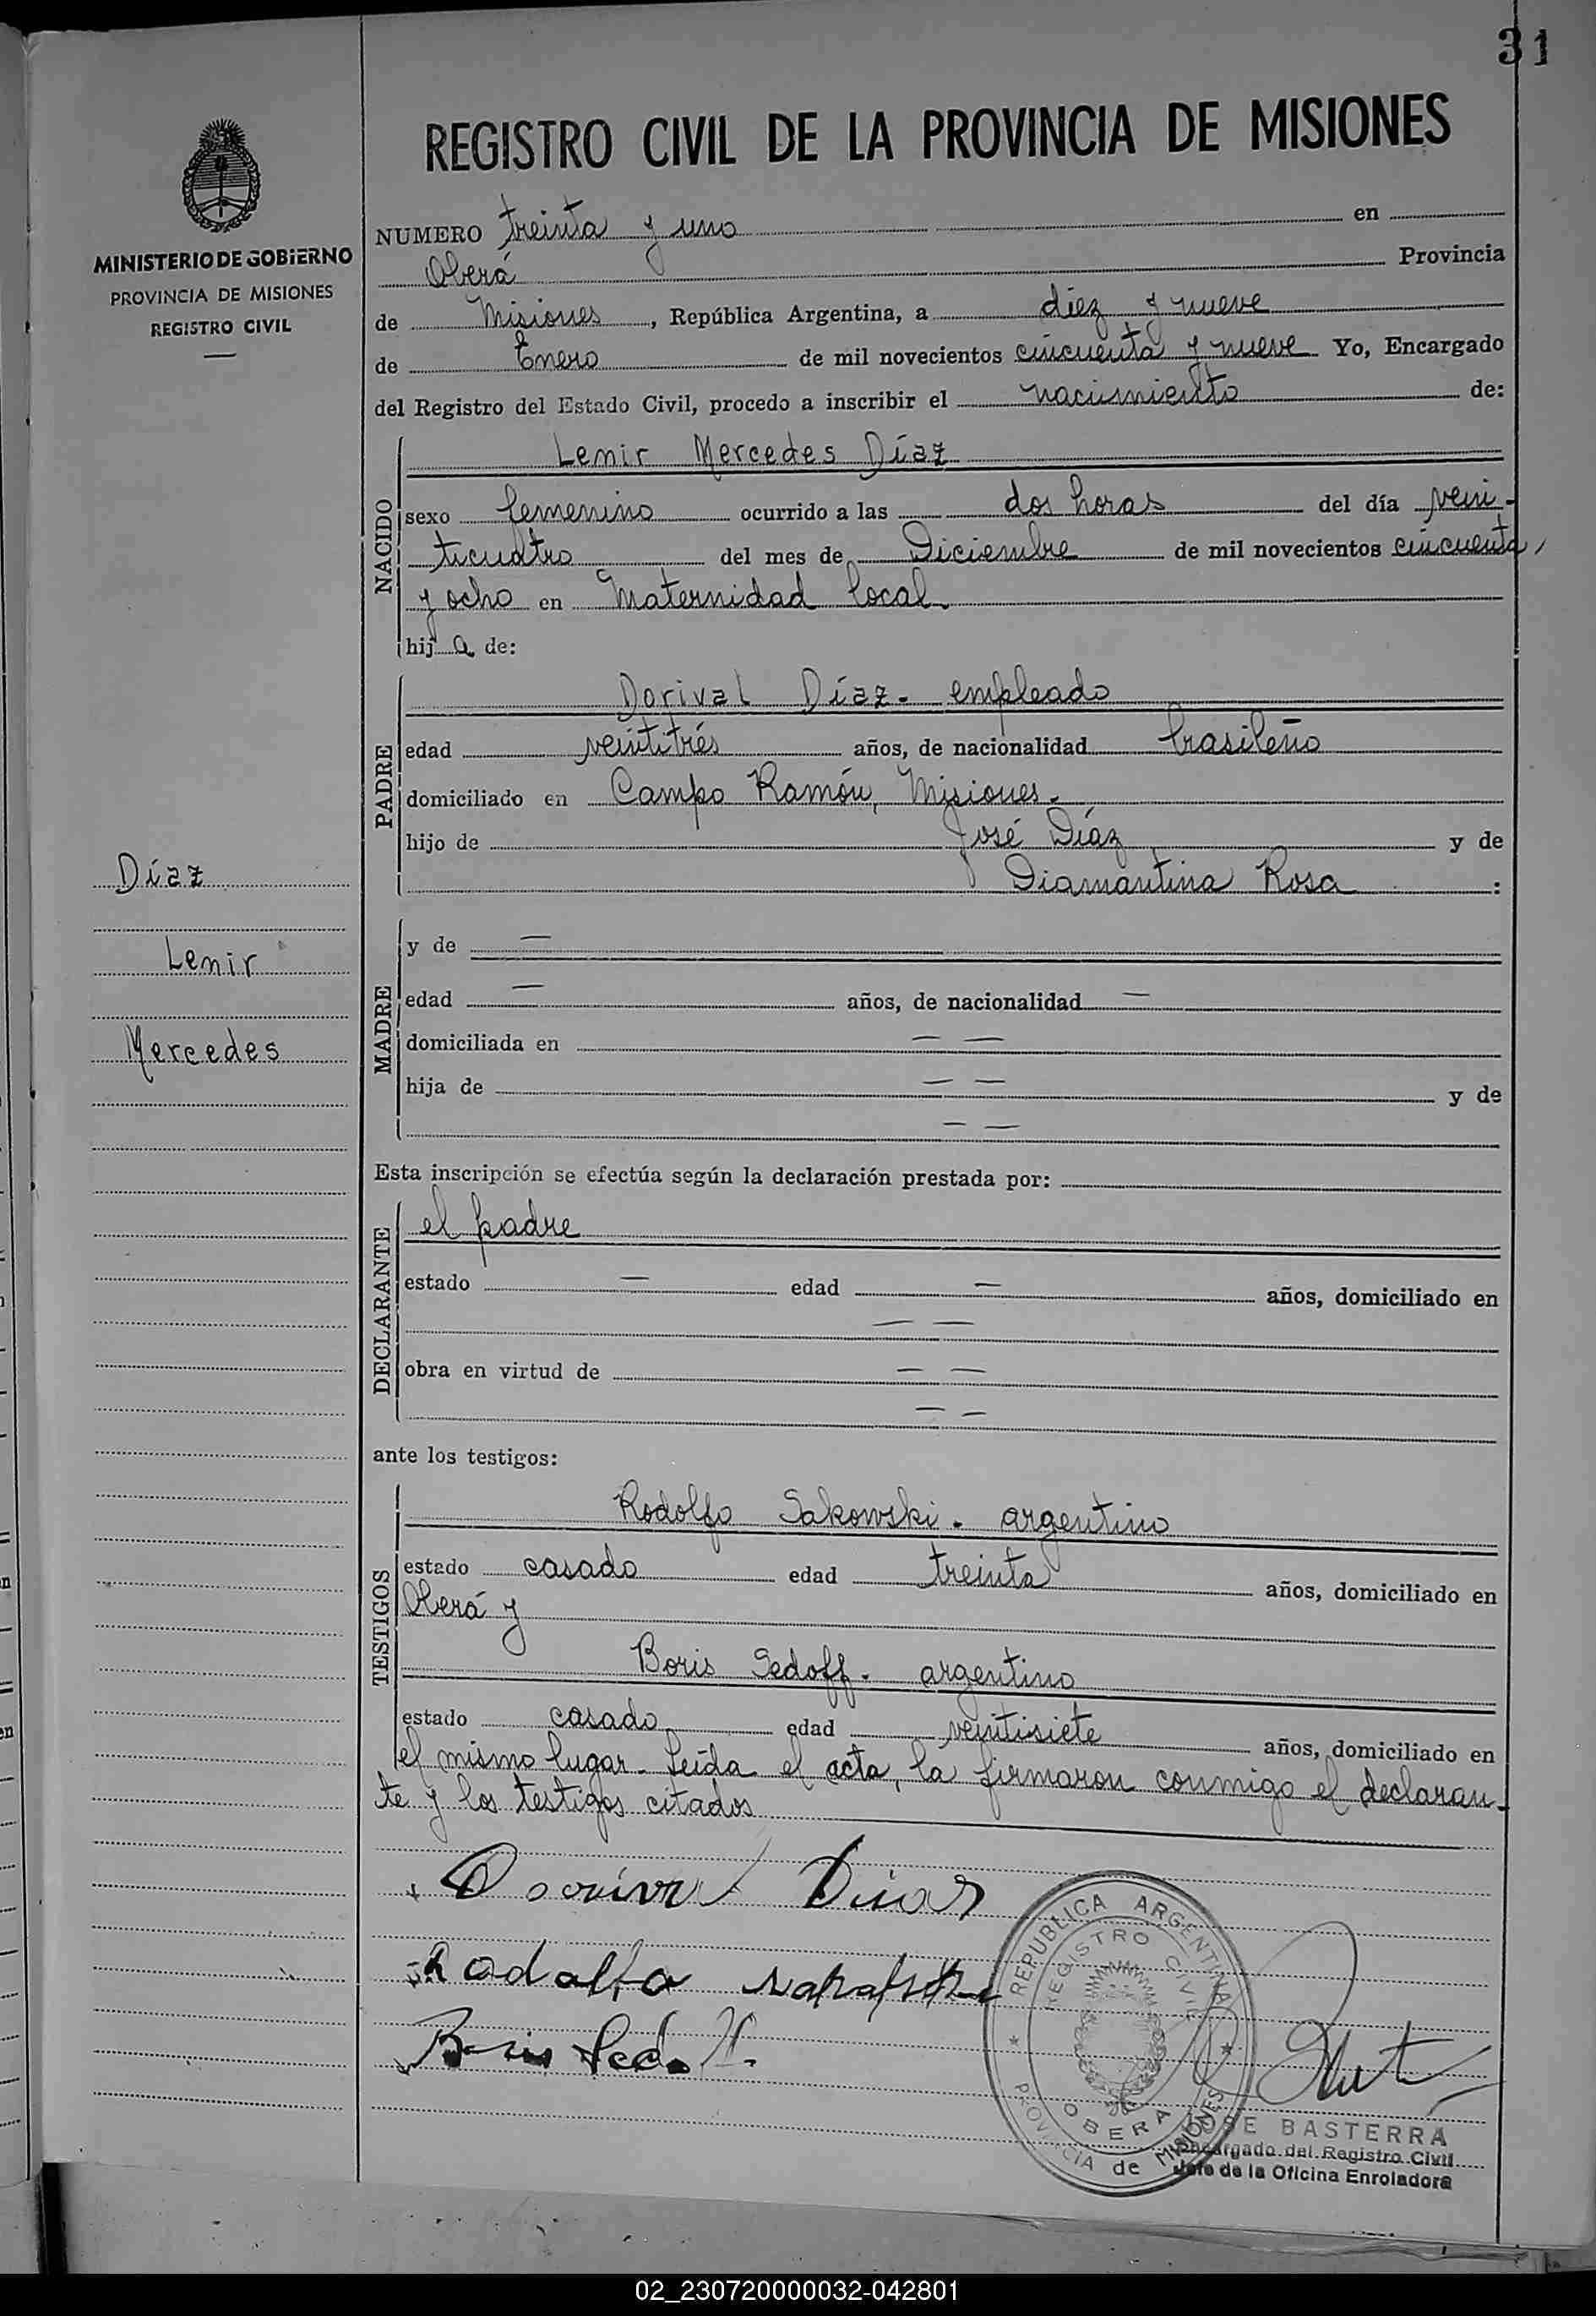 31
REGISTRO CIVIL DE LA PROVINCIA DE MISIONES
MINISTERIO DE GOBIERNO
PROVINCIA DE MISIONES
REGISTRO CIVIL
NUMERO treinta y uno en
Oberá Provincia
de Misiones, República Argentina, a diez y nueve
de Enero de mil novecientos cincuenta y nueve Yo, Encargado
del Registro del Estado Civil, procedo a inscribir el nacimiento de:
NACIDO
Lemir Mercedes Díaz
sexo femenino ocurrido a las dos horas del día vein-
ticuatro del mes de Diciembre de mil novecientos cincuenta
y ocho en Maternidad local.
hija de:
PADRE
Dorival Díaz - empleado
edad veintitrés años, de nacionalidad brasileño
domiciliado en Campo Ramón, Misiones.
hijo de José Díaz y de
Diamantina Rosa :
Díaz
Lemir
Mercedes
MADRE
y de —
edad — años, de nacionalidad —
domiciliada en — —
hija de — — y de
— —
Esta inscripción se efectúa según la declaración prestada por:
DECLARANTE
el padre
estado — edad — años, domiciliado en
— —
obra en virtud de — —
— —
ante los testigos:
TESTIGOS
Rodolfo Sakowski - argentino
estado casado edad treinta años, domiciliado en
Oberá y
Boris Sedoff - argentino
estado casado edad veintisiete años, domiciliado en
el mismo lugar - Leída el acta, la firmaron conmigo el declaran-
te y los testigos citados
Dorival Dias
Rodolfo
Boris Sedoff.
REPUBLICA ARGENTINA
REGISTRO CIVIL
OBERA
PROVINCIA de MISIONES
JOSE BASTERRA
Encargado del Registro Civil
Jefe de la Oficina Enroladora
02_230720000032-042801